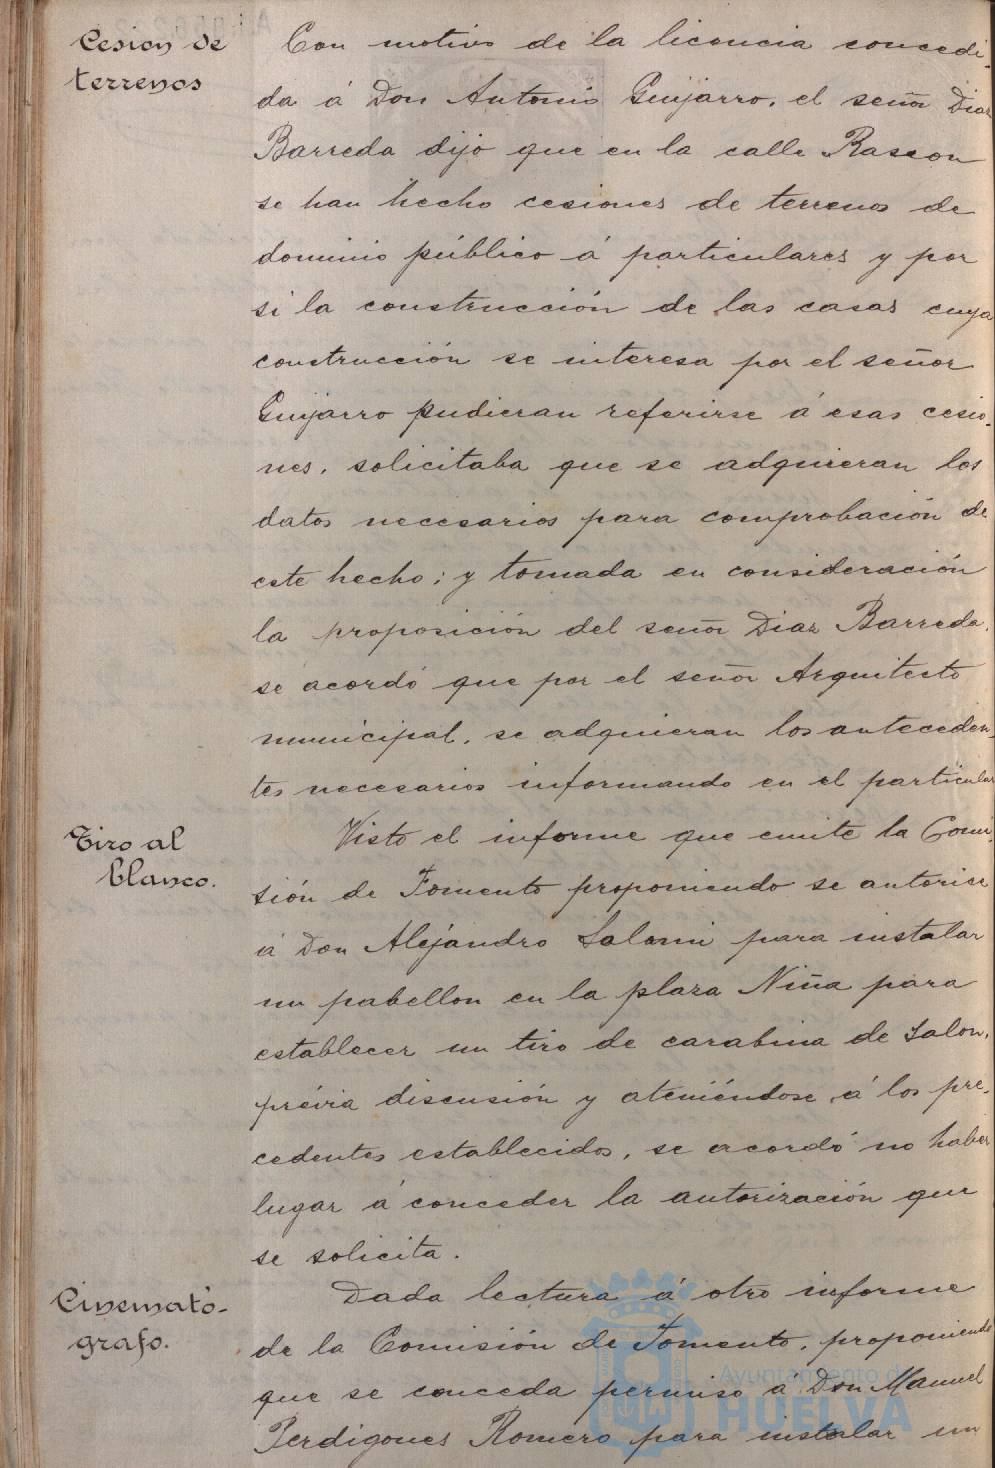 Cesion de
terrenos
Con motivo de la licencia concedi-
da á Don Antonio Guijarro, el señor Diaz
Barreda dijo que en la calle Rascon
se han hecho cesiones de terrenos de
dominio público á particulares y por
si la construcción de las casas cuya
construcción se interesa por el señor
Guijarro pudieran referirse á esas cesio-
nes, solicitaba que se adquieran los
datos necesarios para comprobación de
este hecho; y tomada en consideración
la proposición del señor Diaz Barreda,
se acordó que por el señor Arquitecto
municipal, se adquieran los anteceden-
tes necesarios informando en el particular
Tiro al
blanco.
Visto el informe que emite la Comi-
sión de Fomento proponiendo se autorice
á Don Alejandro Salomi para instalar
un pabellon en la plaza Niña para
establecer un tiro de carabina de Salon,
prévia discusión y ateniéndose á los pre-
cedentes establecidos, se acordó no haber
lugar á conceder la autorización que
se solicita.
Cinemató-
grafo.
Dada lectura á otro informe
de la Comisión de Fomento, proponiendo
que se conceda permiso á Don Manuel
Perdigones Romero para instalar un
Ayuntamiento de
HUELVA